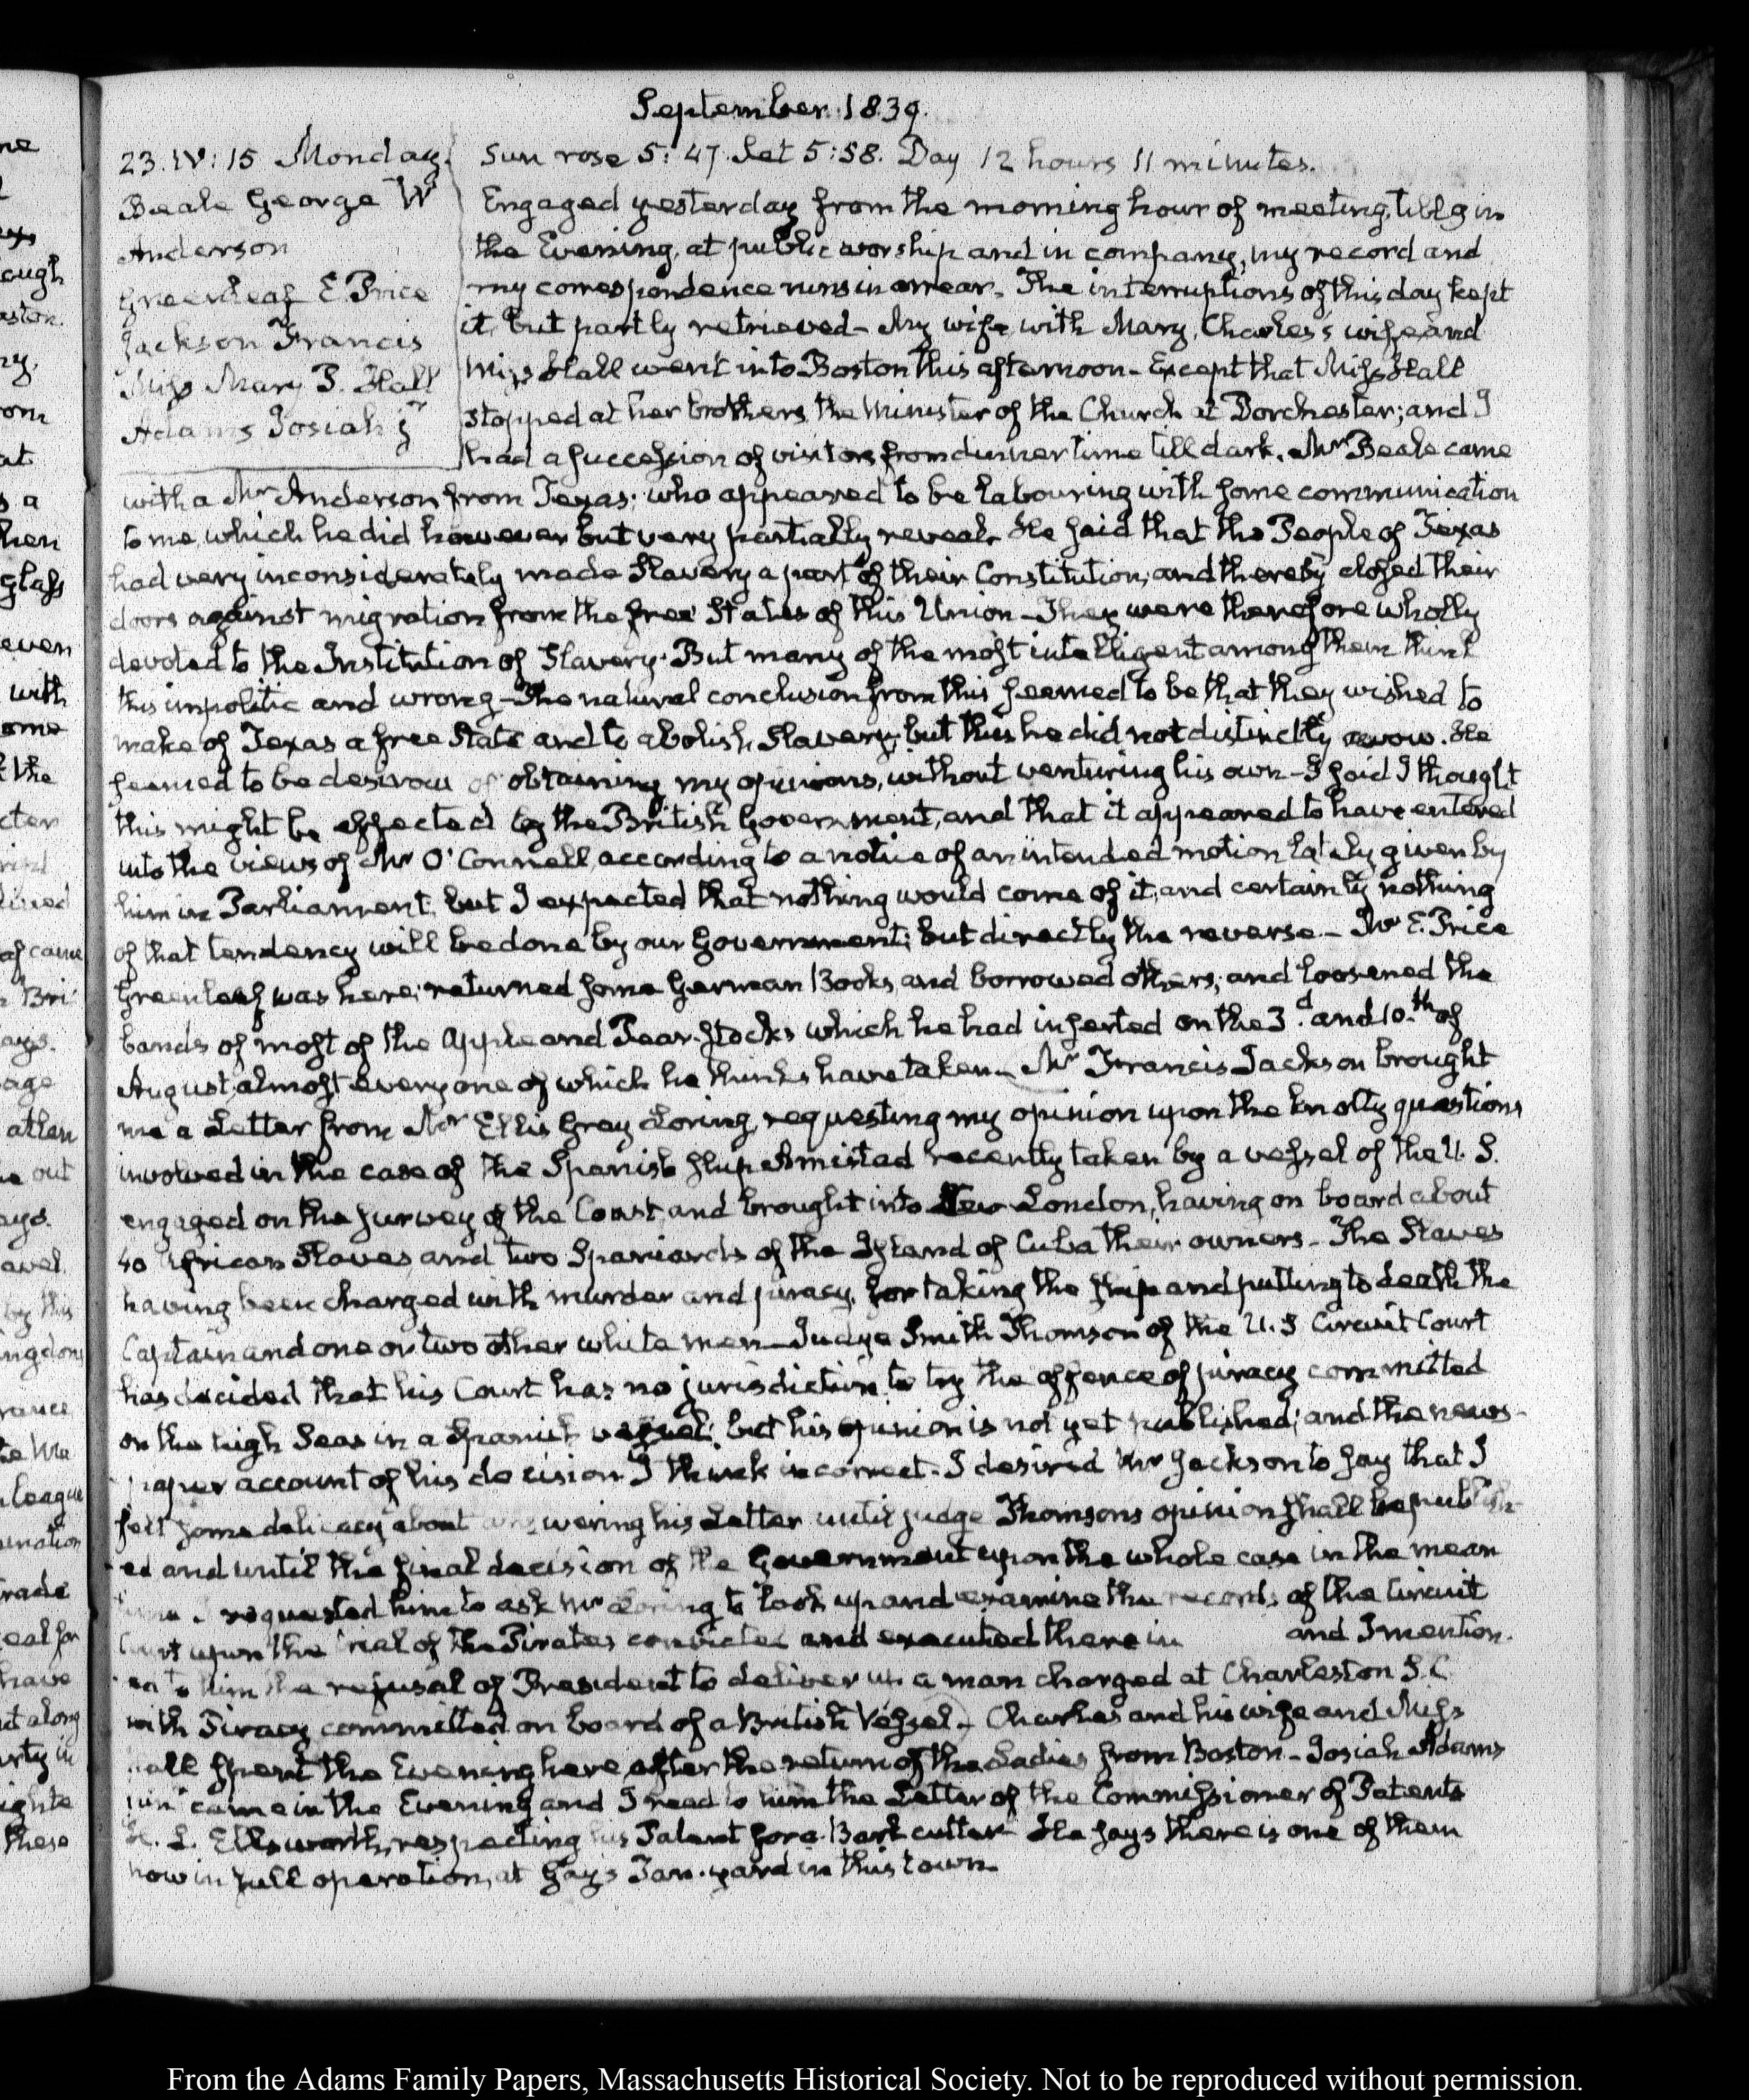 September 1839.
23. IV: 15 Monday.
Beale George W
Anderson
Greenleaf E. Price
Jackson Francis
Miss Mary P. Hall
Adams Josiah jr
Sun rose 5:47. Set 5:58. Day 12 hours 11 minutes.
Engaged yesterday from the morning hour of meeting, till 9 in
the Evening, at public worship and in company, my record and
my correspondence runs in arrear. The interruptions of this day kept
it but partly retrieved – My wife with Mary, Charles's wife and
Miss Hall went into Boston this afternoon – Except that Miss Hall
stopped at her brothers the Minister of the Church at Dorchester; and I
had a succession of visitors from dinner time till dark. Mr Beale came
with a Mr Anderson from Texas; who appeared to be labouring with some communication
to me, which he did however but very partially reveal. He said that the People of Texas
had very inconsiderately made Slavery a part of their Constitution, and thereby closed their
doors against migration from the free States of this Union – They were therefore wholly
devoted to the Institution of Slavery. But many of the most intelligent among them think
this impolitic and wrong – The natural conclusion from this seemed to be that they wished to
make of Texas a free State and to abolish Slavery; but this he did not distinctly avow. He
seemed to be desirous of obtaining my opinions, without venturing his own – I said I thought
this might be effected by the British Government, and that it appeared to have entered
into the views of Mr O'Connell, according to a notice of an intended motion lately given by
him in Parliament, but I expected that nothing would come of it, and certainly nothing
of that tendency will be done by our Government; but directly the reverse – Mr E. Price
Greenleaf was here; returned some German Books, and borrowed others; and loosened the
bands of most of the Apple and Pear-stocks which he had inserted on the 3.d and 10.th of
August, almost every one of which he thinks have taken – Mr Francis Jackson brought
me a Letter from Mr Ellis Gray Loring, requesting my opinion upon the knotty questions
involved in the case of the Spanish ship Amistad recently taken by a vessel of the U. S.
engaged on the survey of the Coast, and brought into New London, having on board about
40 African Slaves and two Spaniards of the Island of Cuba their owners – The Slaves
having been charged with murder and piracy, for taking the ship and putting to death the
Captain and one or two other white men – Judge Smith Thomson of the U. S Circuit Court
has decided that his Court has no jurisdiction to try the offence of piracy committed
on the high Seas in a Spanish vessel; but his opinion is not yet published; and the news-
paper account of his decision I think incorrect. I desired Mr Jackson to say that I
felt some delicacy about answering his Letter until judge Thomsons opinion shall be publish-
ed and until the final decision of the Government upon the whole case in the mean
time I requested him to ask Mr Loring to look up and examine the records of the Circuit
Court upon the trial of the Pirates convicted and executed there in and I mention-
ed to him the refusal of President to deliver up a man charged at Charleston S. C.
with Piracy committed on board of a British Vessel – Charles and his wife and Miss
Hall spent the Evening here after the return of the Ladies from Boston – Josiah Adams
junr came in the Evening and I read to him the Letter of the Commissioner of Patents
H. L. Ellsworth, respecting his Patent for a Bark cutter He says there is one of them
now in full operation, at Gay's Tan-yard in this town.
From the Adams Family Papers, Massachusetts Historical Society. Not to be reproduced without permission.